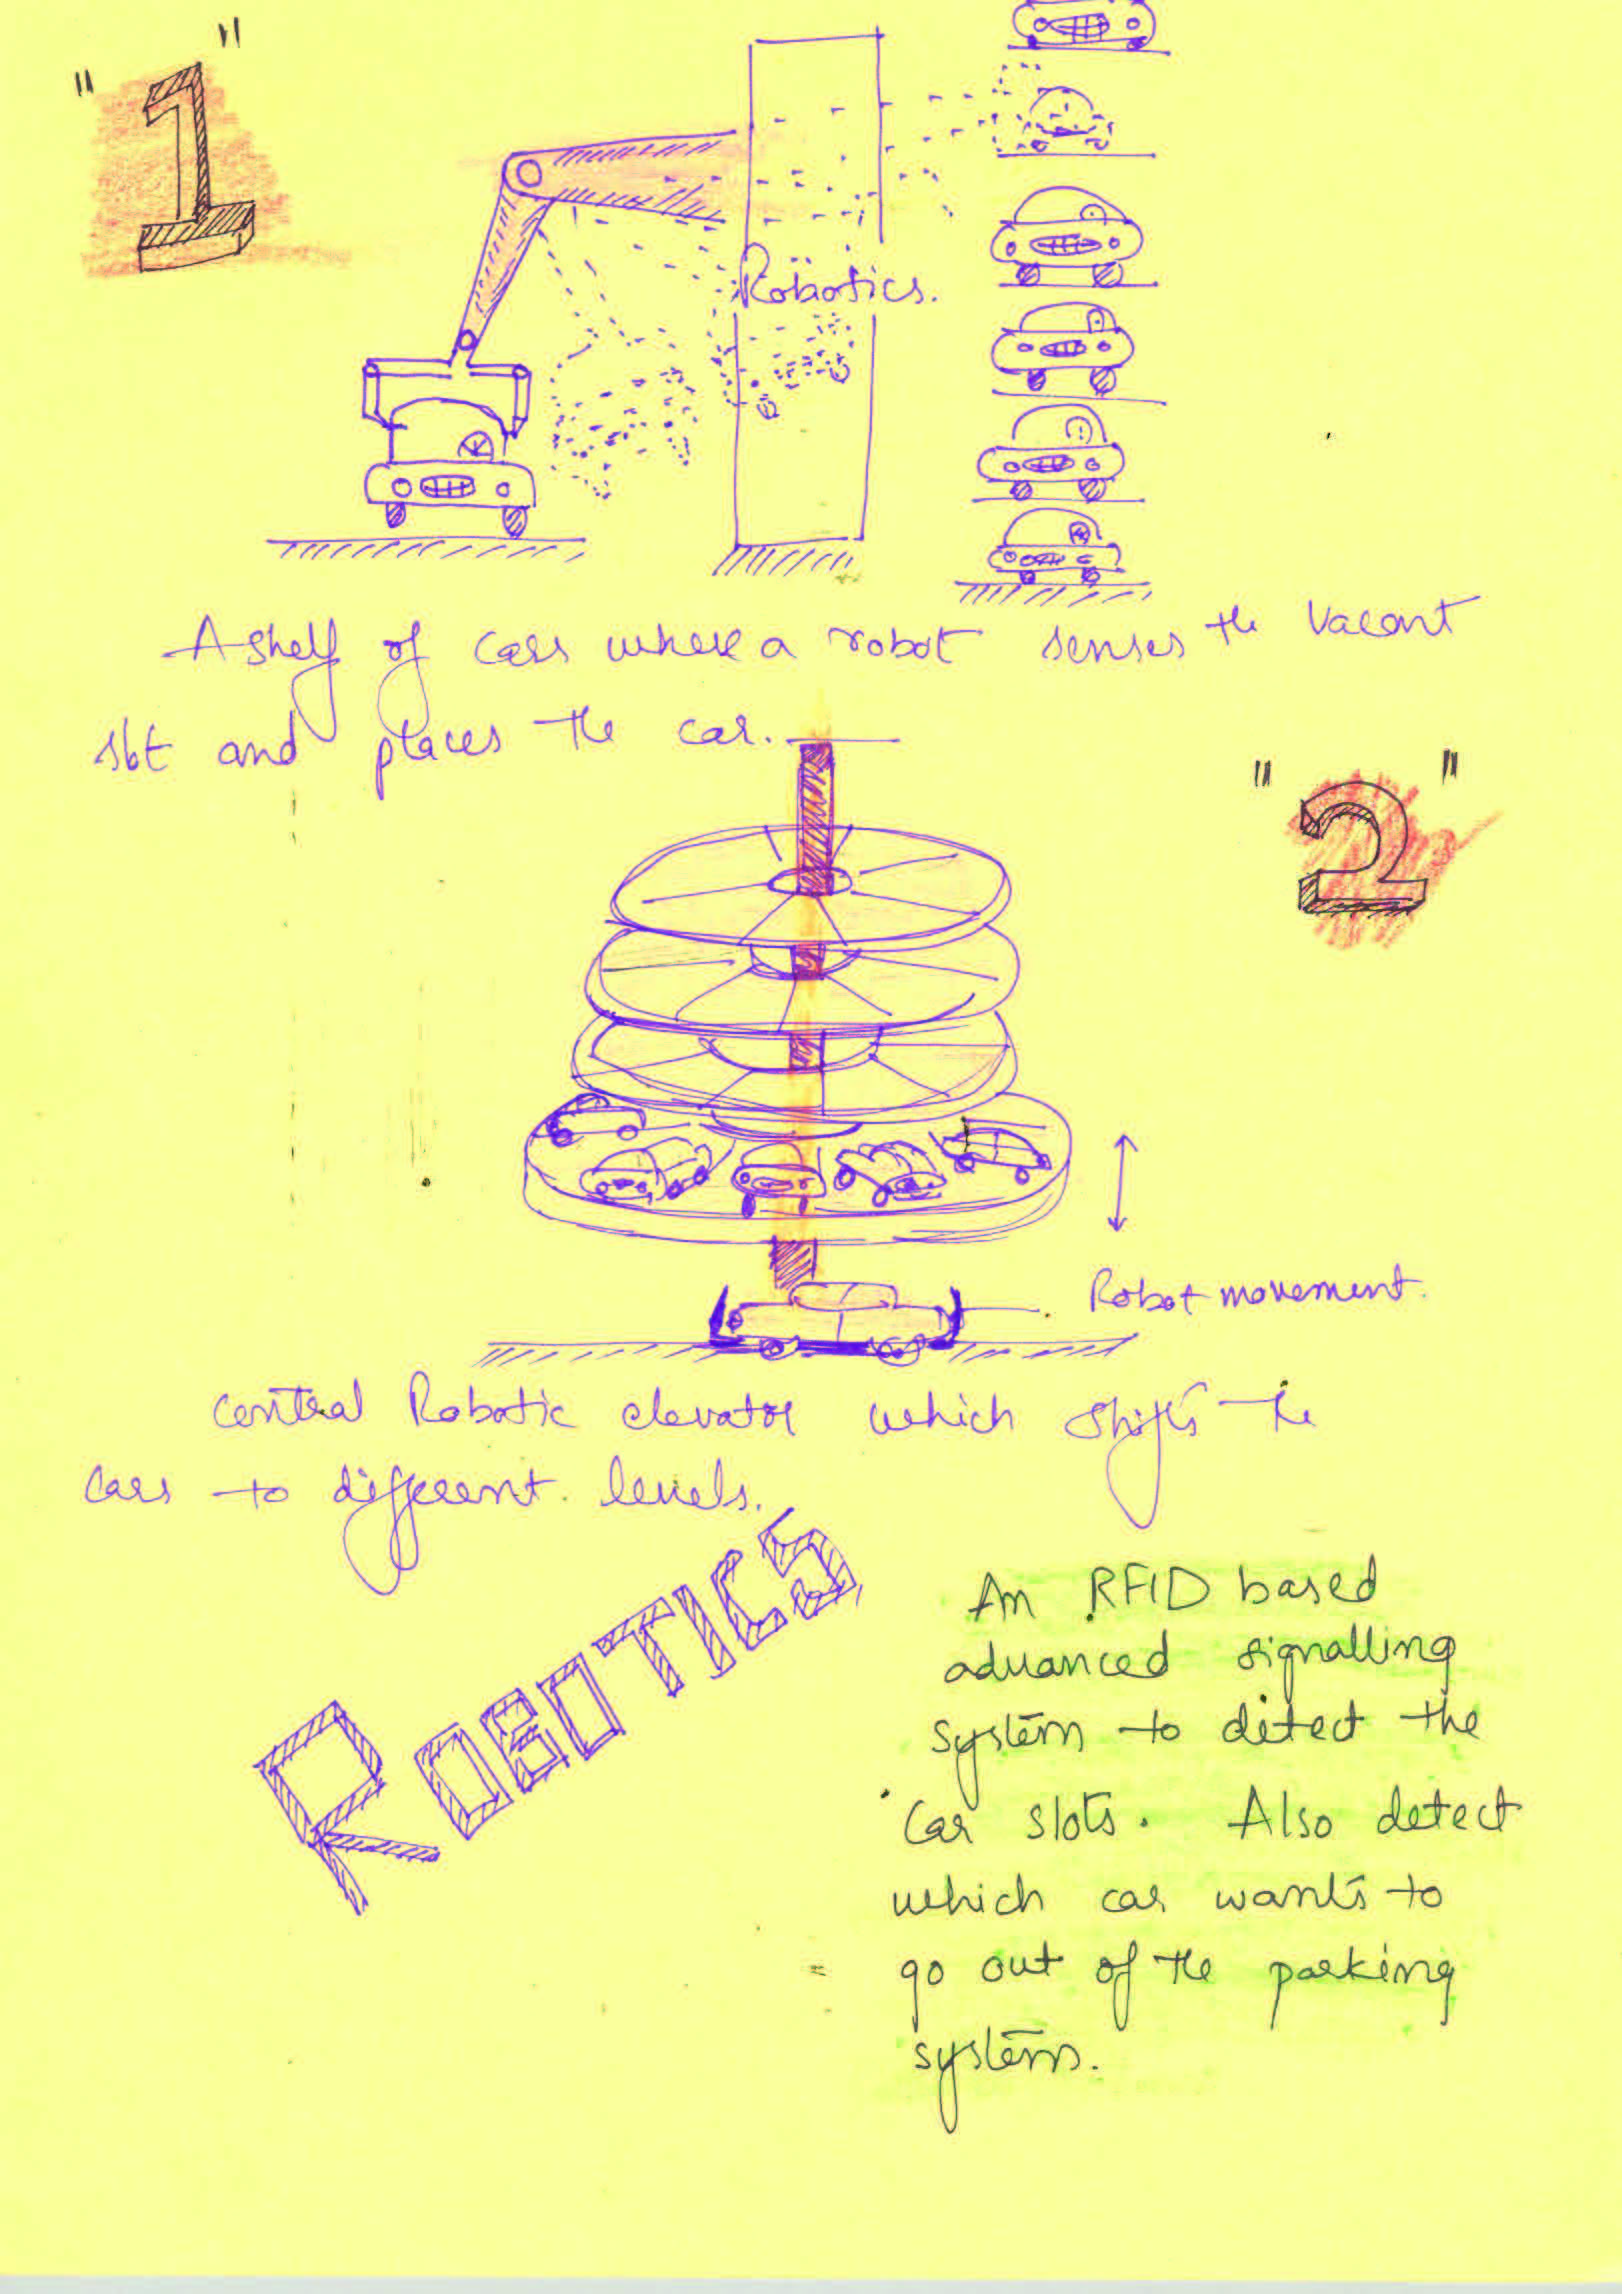 "1"
Robotics.
A shelf of cars where a robot senses the vacant
slot and places the car.
"2"
Robot movement.
Central Robotic elevator which shifts the
cars to different levels.
ROBOTICS
An RFID based
advanced signalling
system to detect the
Car slots. Also detect
which car wants to
go out of the parking
system.